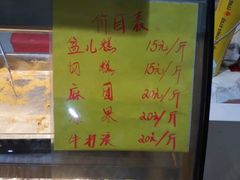 价目表
盆儿糕 15元/斤
切糕 15元/斤
麻团 20元/斤
果 20元/斤
牛打滚 20元/斤